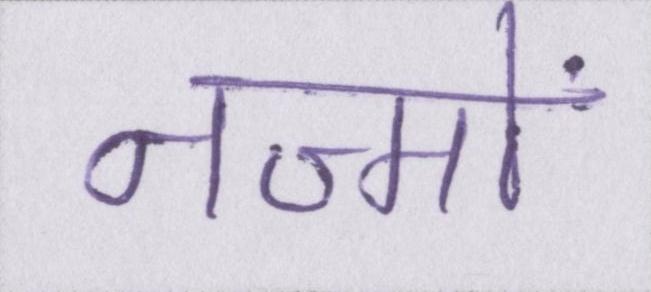 नज्मों